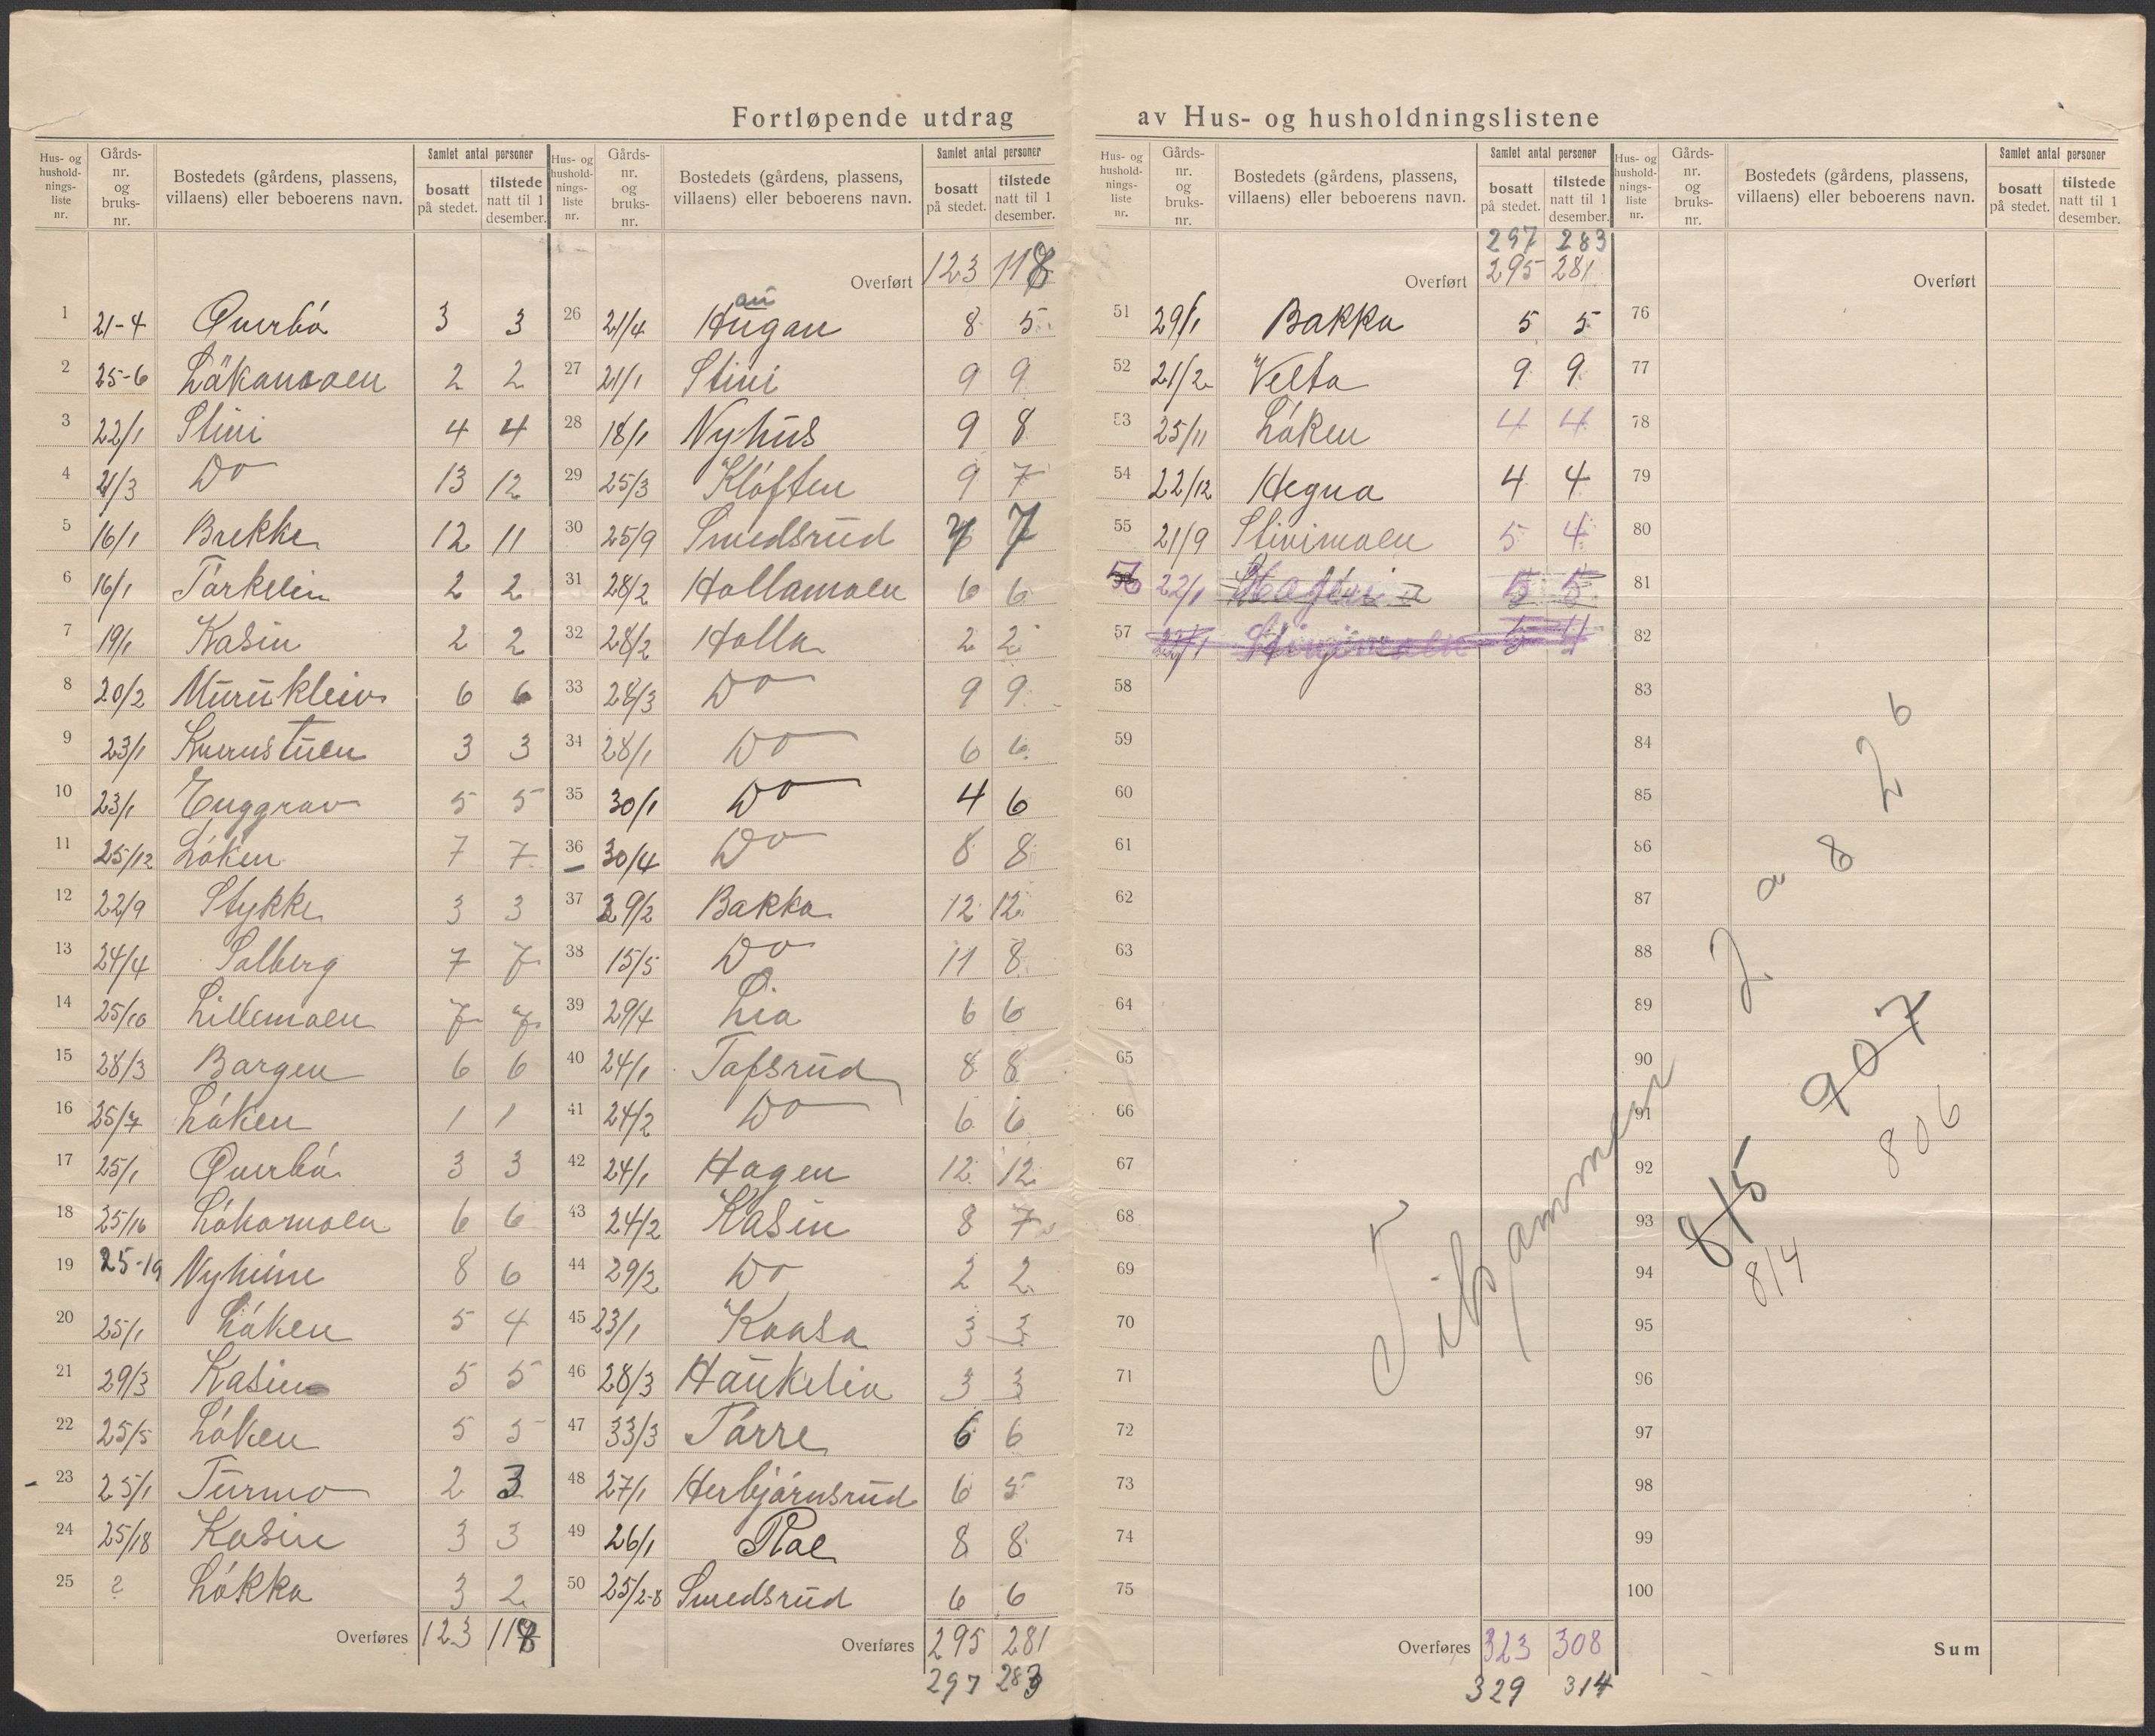 Fortløpende utdrag av Hus- og husholdningslistene
Hus- og hushold- nings- liste nr. | Gårds- nr. og bruks- nr. | Bostedets (gårdens, plassens, villaens) eller beboerens navn. | Samlet antal personer | bosatt på stedet. | tilstede natt til 1 desember.
1 21-4 Överbö 3 3
2 25-6 Lökamoen 2 2
3 22/1 Stivi 4 4
4 21/3 Do 13 12
5 16/1 Brekke 12 11
6 16/1 Törkelin 2 2
7 19/1 Kasin 2 2
8 20/2 Murukleiv 6 6
9 23/1 Kvernstuen 3 3
10 23/1 Enggrav 5 5
11 25/12 Löken 7 7
12 22/9 Stykke 3 3
13 24/4 Solberg 7 7
14 25/10 Lillemoen 7 7
15 28/3 Bargen 6 6
16 25/7 Löken 1 1
17 25/1 Överbö 3 3
18 25/16 Lökamoen 6 6
19 25-19 8 6
20 25/1 Löken 5 4
21 29/3 Kasin 5 5
22 25/5 Löken 5 5
23 25/1 Turmo 2 3
24 25/18 Kasin 3 3
25 ? Lökka 3 2
Overføres 123 118
Hus- og hushold- nings- liste nr. | Gårds- nr. og bruks- nr. | Bostedets (gårdens, plassens, villaens) eller beboerens navn. | Samlet antal personer | bosatt på stedet. | tilstede natt til 1 desember.
Overført 123 118
au
26 21/4 Hugan 8 5
27 21/1 Stivi 9 9
28 18/1 Nyhus 9 8
29 25/3 Klöften 9 7
30 25/9 Smedsrud 7 7
31 28/2 Hollamoen 6 6
32 28/2 Holla 2 2
33 28/3 Do 9 9
34 28/1 Do 6 6
35 30/1 Do 4 6
36 30/4 Do 8 8
37 29/2 Bakka 12 12
38 15/5 Do 11 8
39 29/4 Lia 6 6
40 24/1 Tofsrud 8 8
41 24/2 Do 6 6
42 24/1 Hagen 12 12
43 24/2 Kasin 8 7
44 29/2 Do 2 2
45 23/1 Kaasa 3 3
46 28/3 Haukelia 3 3
47 33/3 Törre 6 6
48 27/1 Herbjörnsrud 6 5
49 26/1 Roe 8 8
50 25/2-8 Smedsrud 6 6
Overføres 295 281
297 283
Hus- og hushold- nings- liste nr. | Gårds- nr. og bruks- nr. | Bostedets (gårdens, plassens, villaens) eller beboerens navn. | Samlet antal personer | bosatt på stedet. | tilstede natt til 1 desember.
297 283
Overført 295 281
51 29/1 Bakka 5 5
52 21/2 Velta 9 9
53 25/11 Löken 4 4
54 22/12 Hegna 4 4
55 21/9 Stivimoen 5 4
56 22/1 5 5
57
58
59
60
61
62
63
64
65
66
67
68
69
70
71
72
73
74
75
Overføres 323 308
329 314
Hus- og hushold- nings- liste nr. | Gårds- nr. og bruks- nr. | Bostedets (gårdens, plassens, villaens) eller beboerens navn. | Samlet antal personer | bosatt på stedet. | tilstede natt til 1 desember.
Overført
76
77
78
79
80
81
82
83
84
85
86
87
88
89
90
91
92
93
94
95
96
97
98
99
100
Sum
Tilsammen
815
814
907
806